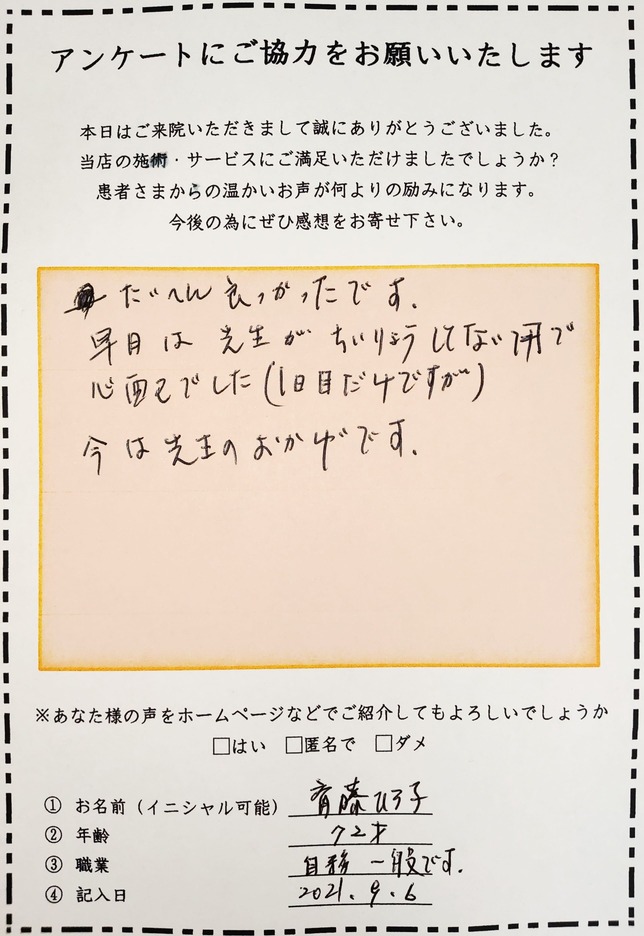 アンケートにご協力をお願いいたします
本日はご来院いただきまして誠にありがとうございました。
当店の施術・サービスにご満足いただけましたでしょうか?
患者さまからの温かいお声が何よりの励みになります。
今後の為にぜひ感想をお寄せ下さい。
たいへん良っかったです.
早目は先生がちいりょうしてない所で
心配でした(1日目だけですが)
今は先生のおかげです.
※あなた様の声をホームページなどでご紹介してもよろしいでしょうか
□はい □匿名で □ダメ
① お名前(イニシャル可能) 斉藤ひろ子
② 年齢 72才
③ 職業 一般です.
④ 記入日 2021.9.6